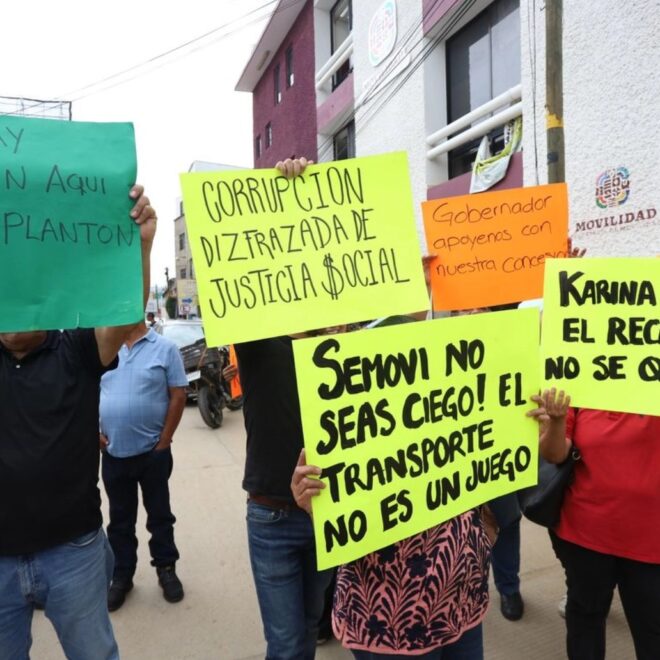 AY
N AQUI
PLANTON
CORRUPCION
DIZFRAZADA DE
JUSTICIA $OCIAL
Gobernador
apoyenos con
nuestra
SEMOVI NO
SEAS CIEGO! EL
TRANSPORTE
NO ES UN JUEGO
KARINA
EL REC
NO SE
MOVILIDAD